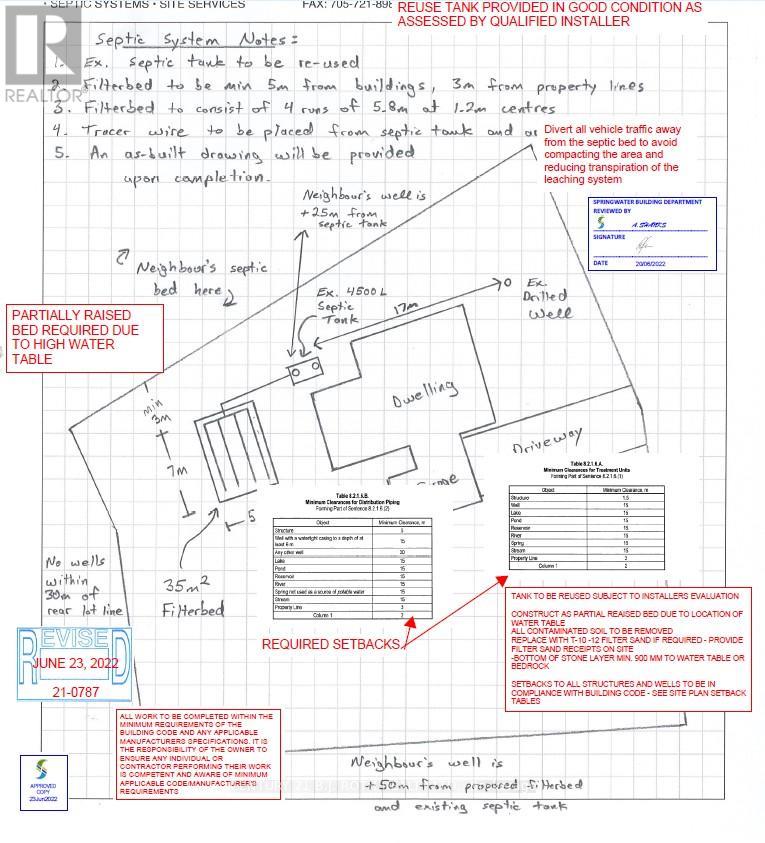 • SEPTIC SYSTEMS • SITE SERVICES
FAX: 705-721-898
REUSE TANK PROVIDED IN GOOD CONDITION AS
ASSESSED BY QUALIFIED INSTALLER
REALTOR®
Septic System Notes:
1. Ex. Septic tank to be re-used
2. Filterbed to be min 5m from buildings, 3m from property lines
3. Filterbed to consist of 4 runs of 5.8m at 1.2m centres
4. Tracer wire to be placed from septic tank and
5. An as-built drawing will be provided
upon completion.
Divert all vehicle traffic away
from the septic bed to avoid
compacting the area and
reducing transpiration of the
leaching system
SPRINGWATER BUILDING DEPARTMENT
REVIEWED BY
A.SHANKS
SIGNATURE
DATE 20/06/2022
Neighbour's well is
+25m from
septic tank
Neighbour's septic
bed here
Ex. 4500 L
Septic
Tank
17m
Ex.
Drilled
Well
PARTIALLY RAISED
BED REQUIRED DUE
TO HIGH WATER
TABLE
min
3m
7m
5
Dwelling
Driveway
Table 8.2.1.6.A.
Minimum Clearances for Treatment Units
Forming Part of Sentence 8.2.1.6.(1)
Object Minimum Clearance, m
Structure 1.5
Well 15
Lake 15
Pond 15
Reservoir 15
River 15
Spring 15
Stream 15
Property Line 3
Column 1 2
Table 8.2.1.6.B.
Minimum Clearances for Distribution Piping
Forming Part of Sentence 8.2.1.6.(2)
Object Minimum Clearance, m
Structure 5
Well with a watertight casing to a depth of at
least 6 m 15
Any other well 30
Lake 15
Pond 15
Reservoir 15
River 15
Spring not used as a source of potable water 15
Stream 15
Property Line 3
Column 1 2
No wells
within
30m of
rear lot line
35m²
Filterbed
REQUIRED SETBACKS
REVISED
JUNE 23, 2022
21-0787
TANK TO BE REUSED SUBJECT TO INSTALLERS EVALUATION
CONSTRUCT AS PARTIAL REAISED BED DUE TO LOCATION OF
WATER TABLE
ALL CONTAMINATED SOIL TO BE REMOVED
REPLACE WITH T-10 -12 FILTER SAND IF REQUIRED - PROVIDE
FILTER SAND RECEIPTS ON SITE
-BOTTOM OF STONE LAYER MIN. 900 MM TO WATER TABLE OR
BEDROCK
SETBACKS TO ALL STRUCTURES AND WELLS TO BE IN
COMPLIANCE WITH BUILDING CODE - SEE SITE PLAN SETBACK
TABLES
ALL WORK TO BE COMPLETED WITHIN THE
MINIMUM REQUIREMENTS OF THE
BUILDING CODE AND ANY APPLICABLE
MANUFACTURERS SPECIFICATIONS. IT IS
THE RESPONSIBILITY OF THE OWNER TO
ENSURE ANY INDIVIDUAL OR
CONTRACTOR PERFORMING THEIR WORK
IS COMPETENT AND AWARE OF MINIMUM
APPLICABLE CODE/MANUFACTURER'S
REQUIREMENTS
APPROVED
COPY
23Jun2022
Neighbour's well is
+50m from proposed filterbed
and existing septic tank